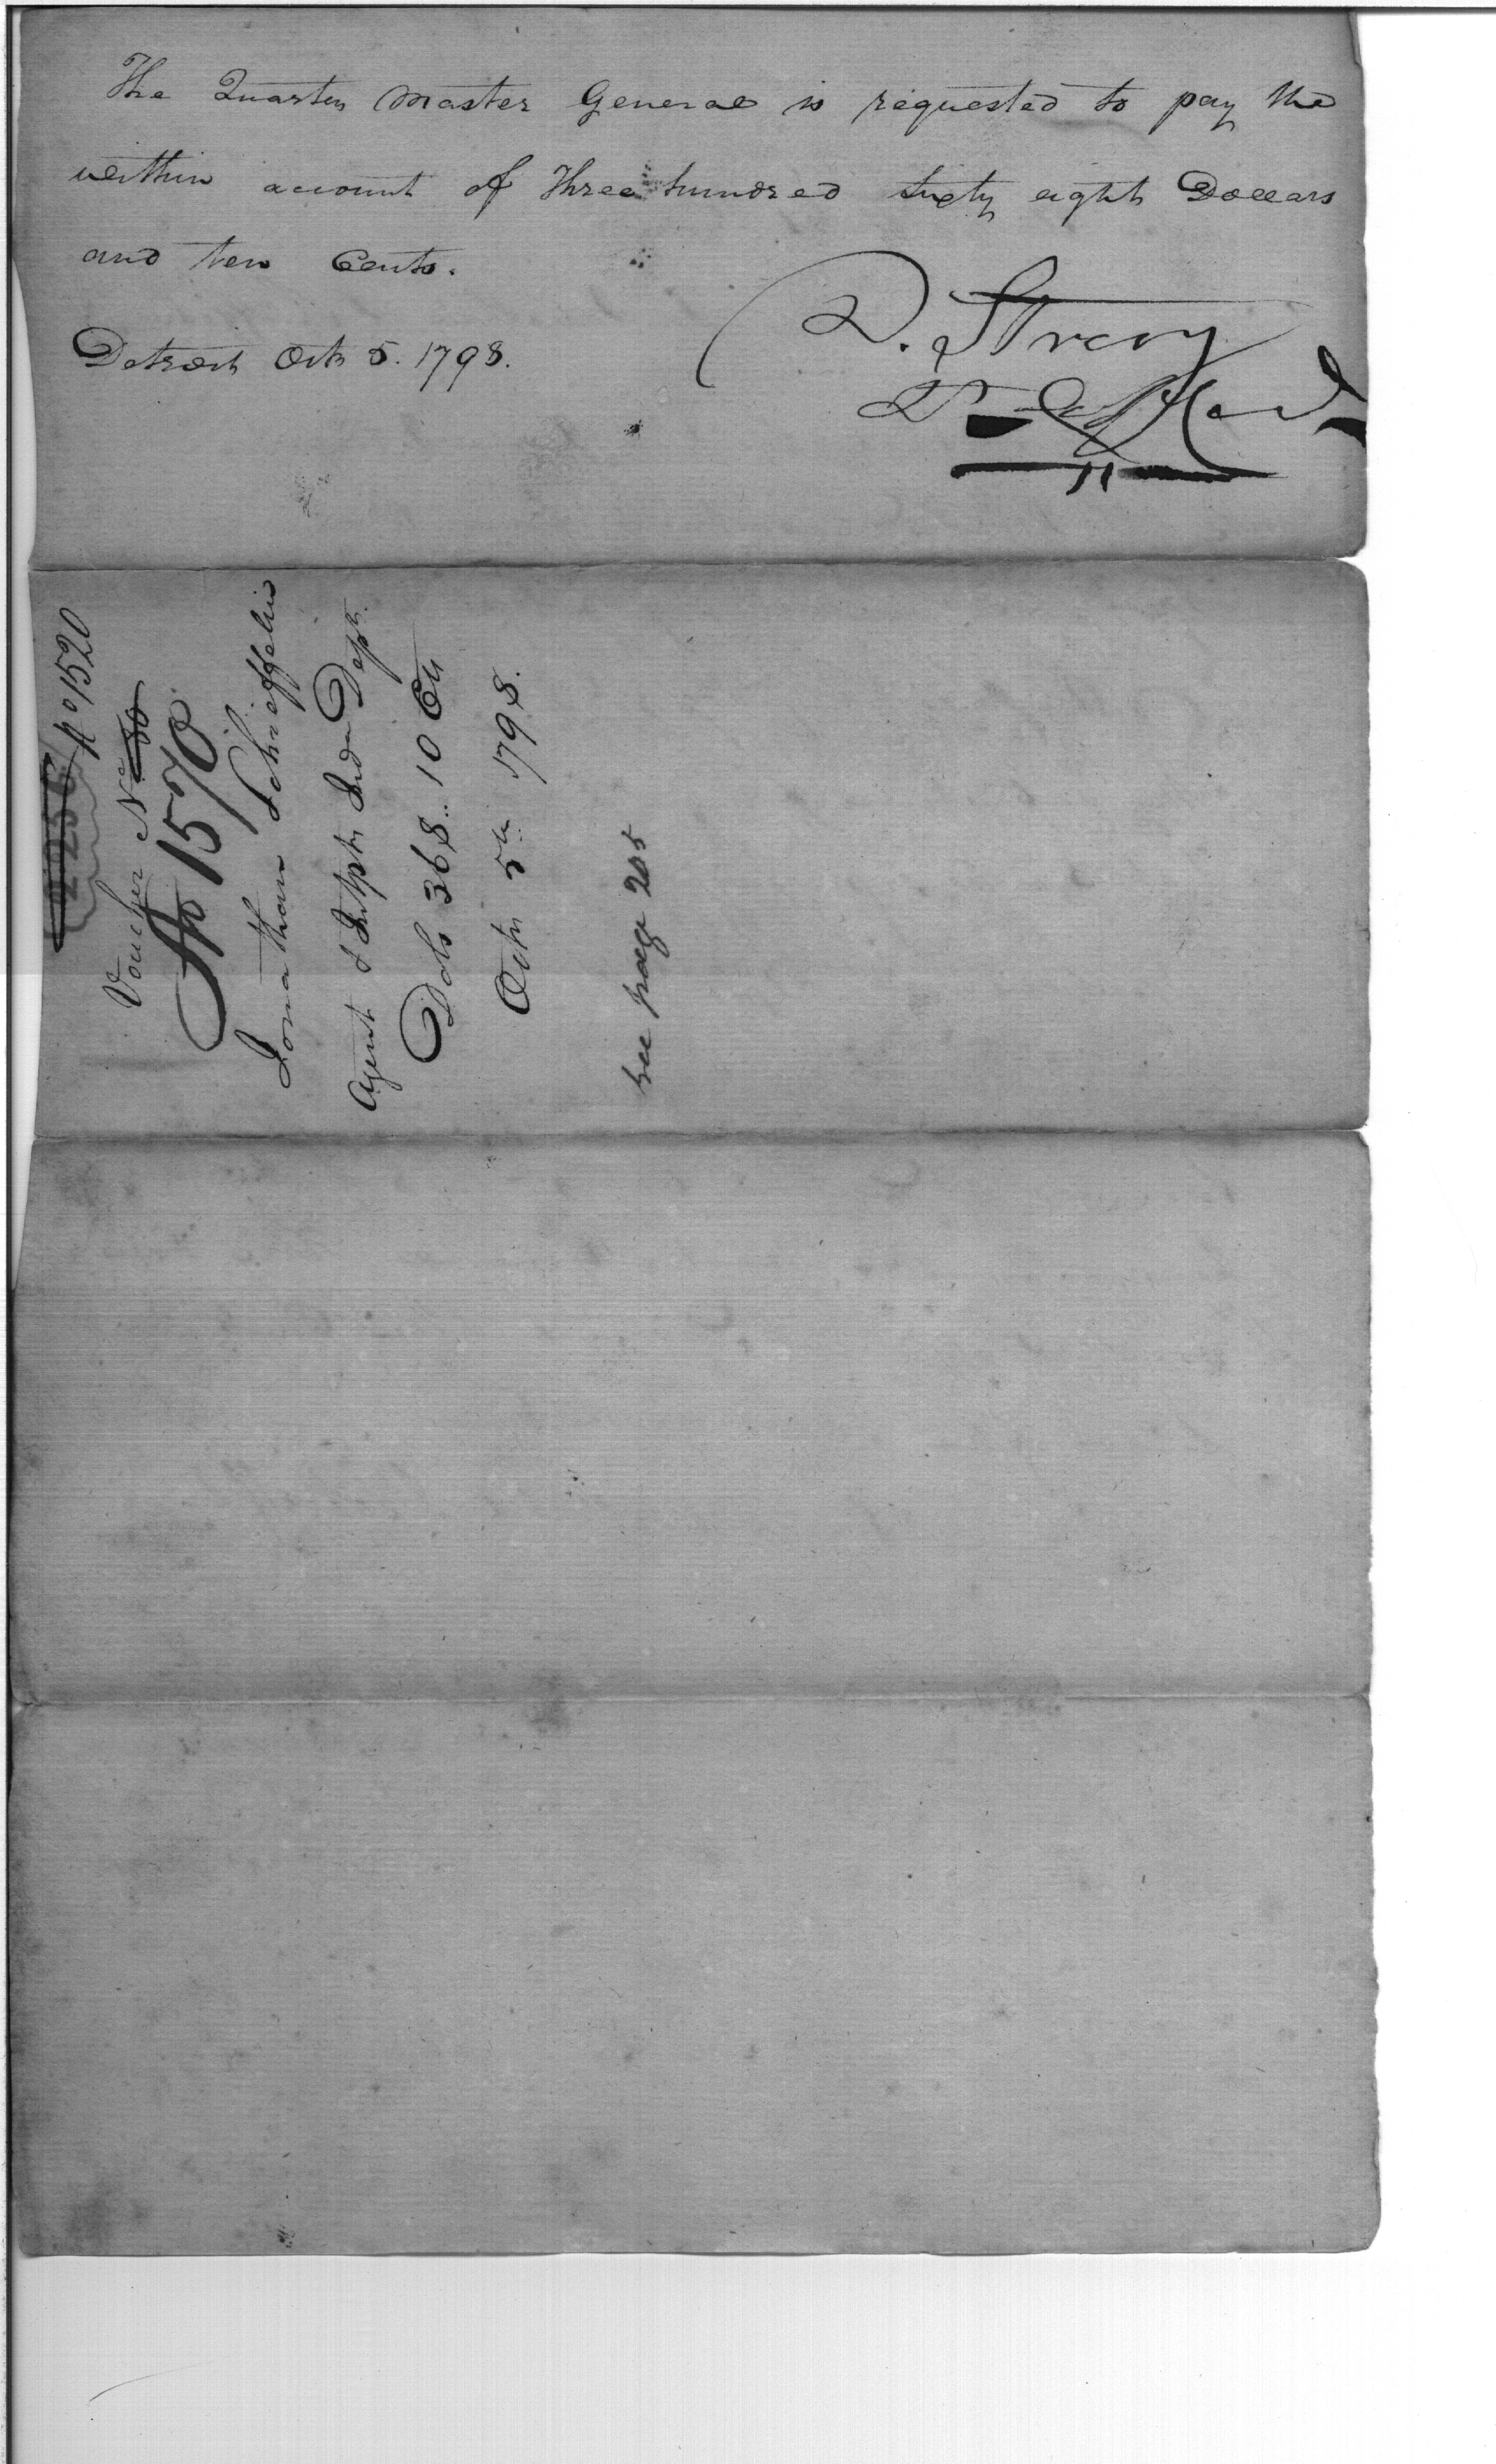 The Quarter Master General is requested to pay the
within account of Three hundred sixty eight Dollars
and ten Cents.
Detroit Octr 5. 1798.
D. Strong
No 1520
Voucher No 80
No 1570
Jonathan Schieffelin
Agent & Intptr Indn Dept.
Dols 368.. 10 Cts
Octr 5th 1798.
see page 205